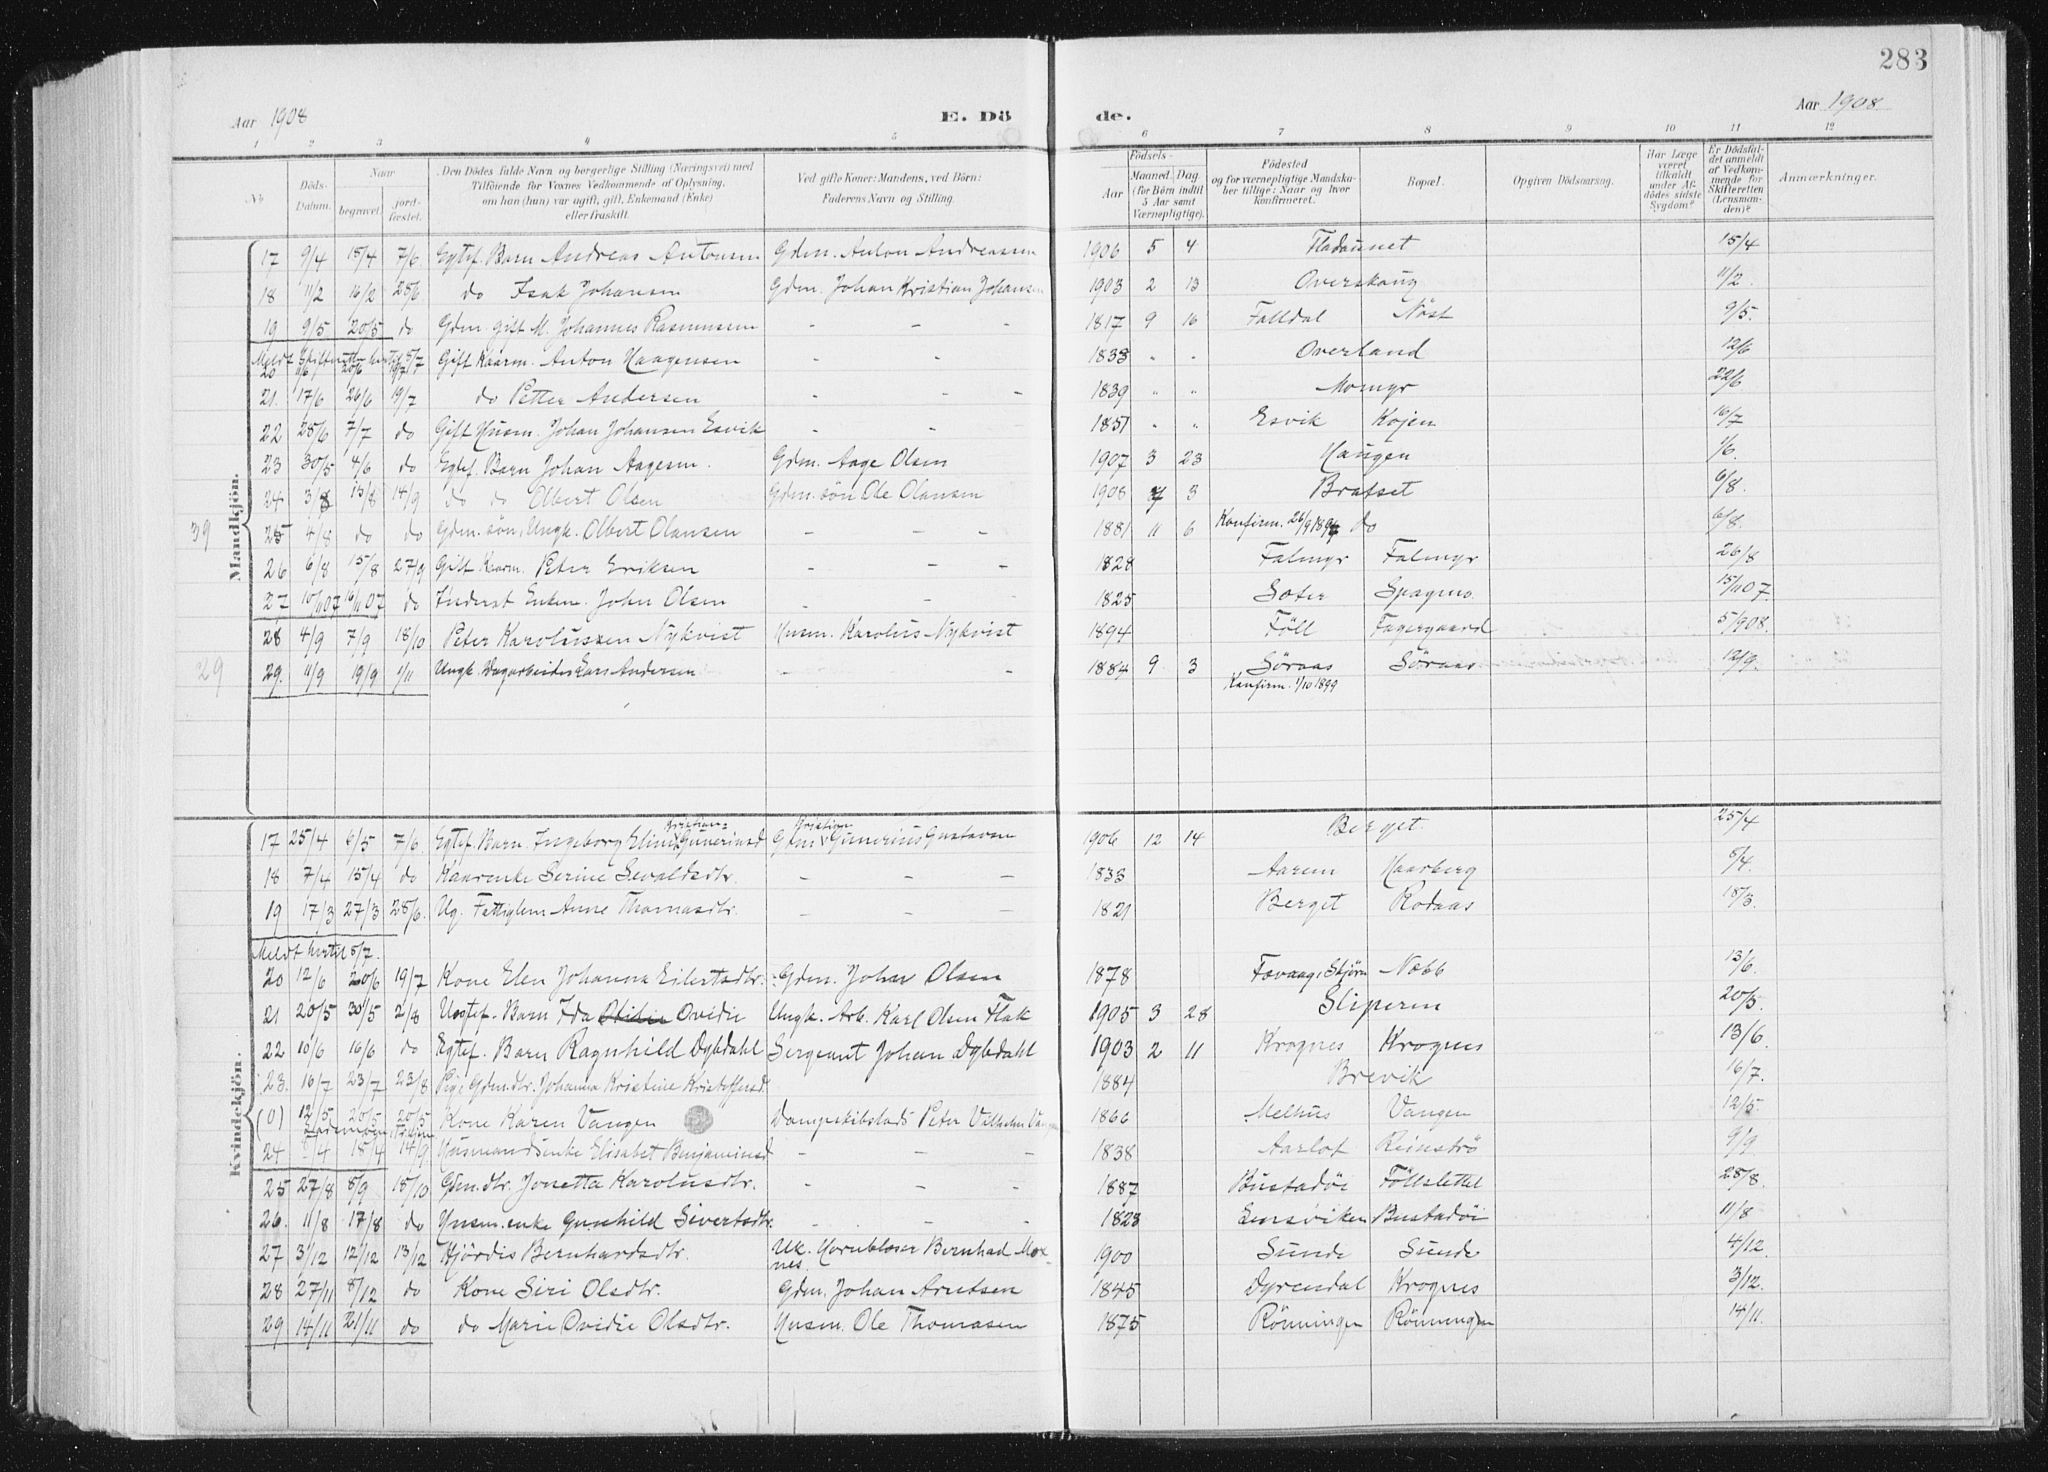 283
Aar 1908 E. Dö de. Aar 1908
1 2 3 4 5 6 7 8 9 10 11 12
No. Döds-Datum. Naar begravet. jord-fæstet. Den Dödes fulde Navn og borgerlige Stilling (Næringsvei) med Tilföiende for Voxnes Vedkommende af Oplysning, om han (hun) var ugift, gift, Enkemand (Enke) eller fraskilt. Ved gifte Koner: Mandens, ved Börn: Faderens Navn og Stilling. Födsels- Aar Maaned. Dag. (for Börn indtil 5 Aar samt Værnepligtige). Födested og for værnepligtige Mandskaber tillige: Naar og hvor konfirmeret. Bopæl. Opgiven Dödsaarsag. Har Læge været tilkaldt under Afdödes sidste Sygdom? Er Dödsfaldet anmeldt af Vedkommende for Skifteretten (Lensmanden)? Anmærkninger.
Mandkjön.
17 9/4 15/4 7/6 Egtef. Barn Andreas Antonsen Gdm. Anton Andreassen 1906 5 4 Fladaunet 15/4
18 11/2 16/2 28/6 do Isak Johansen Gdm. Johan Kristian Johansen 1903 2 13 Overskaug 11/2.
19 9/5 20/5 do Gdm. gift M. Johannes Rasmussen - - - 1817 9 16 Falldal Nöst 9/5.
Meldt Skifteretten hertil 8/7
20 11/6 20/6 19/7 Gift Kaarm. Anton Haagensen - - 1838 " " Overland 12/6
21. 17/6 26/6 19/7 do Petter Andersen - - - 1839 " " Momyr 22/6
22 28/6 7/7 do Gift Husm. Johan Johansen Esvik - - 1851 " " Esvik Kojen 16/7
23 30/5 4/6 do Egtef. Barn Johan Aagesen. Gdm. Aage Olsen 1907 3 23 Haugen 1/6.
24 3/8 13/8 14/9 do do Albert Olsen Gdm. sön Ole Olansen 1908 7 3 Bratset 6/8.
39 25 4/8 do do Gdm. sön, Ungk. Albert Olansen - - - 1881 11 6 Konfirm. 26/9 1897 do 6/8.
26 6/8 15/8 27/9 Gift Kaarm. Peter Eriksen - - - 1828 Falmyr Falmyr 26/8
27 10/11 07 16/11 07 do Inderst Enkem. John Olsen - - - 1825 Sæter Spagmo. 15/11 07.
28 4/9 7/9 18/10 Peter Karolussen Nykvist Husm. Karolus Nykvist 1894 Föll Fagergaard 5/9 08.
29 29. 11/9 19/9 1/11 Ungk. Dagarbeider Lars Andersen - - 1884 9 3 Söraas Söraas 12/9.
Konfirm. 1/10 1899
Kvindekjön.
17 25/4 6/5 7/6. Egtef. Barn Ingeborg Eline Kristian= Gunerinsd Gdm Kristian Gunerius Gustavsen 1906 12 14 Berget. 25/4
18 7/4 15/4 do Kaarenke Serine Sevaldsdtr. - - - 1833 Aarem Haarberg 8/4.
19 17/3 27/3 28/6. Ug. Fattiglem Anne Thomasdtr. - - - 1821 Berget Rodaas 18/3.
Meldt hertil 8/7.
20 12/6 20/6 19/7 Kone Elen Johanna Eilertsdtr. Gdm. Johan Olsen 1878 Fævaag, Skjörn Næbb 13/6.
21 20/5 30/5 2/8 Uegtef. Barn Ida Ovidie Ungk. Arb. Karl Olsen Flak 1905 3 28 Sliperen 20/5.
22 10/6 16/6 do Egtef. Barn Ragnhild Dybdahl Sergeant Johan Dybdahl 1903 2 11 Krognes Krognes 13/6.
23. 16/7 23/7 23/8 Pige Gdm. dtr. Johanna Kristine Kristoffersd. 1884 Brevik 16/7.
(0) 12/5 20/5 20/5 Kone Karen Vangen Dampskibslods Peter Vilhelm Vangen 1866 Melhus Vangen 12/5
24 18/4 14/9 Husmandsenke Elisabet Benjaminsd - - - 1838 Aarlot Reinströ 9/9
25 27/8 8/9 18/10 Gdm. dtr. Jonetta Karolusdtr. - - - 1887 Bustadöi Föllslettet 28/8.
26. 11/8 17/8 do Husm. enke Gunhild Sivertsdtr. - - - 1823 Lensviken Bustadöi 11/8
27 3/12 12/12 13/12 Hjördis Bernhardsdtr. Uk. Hornblæser Bernhad Moxnes. 1900 Sunde Sunde 4/12.
28 27/11 8/12 do Kone Siri Olsdtr. Gdm. Johan Arntsen 1845 Dyrendal Krognes 3/12.
29 14/11 21/11 do do Marie Ovidie Olsdtr. Husm. Ole Thomasen 1875 Rönningen Rönningen 14/11.